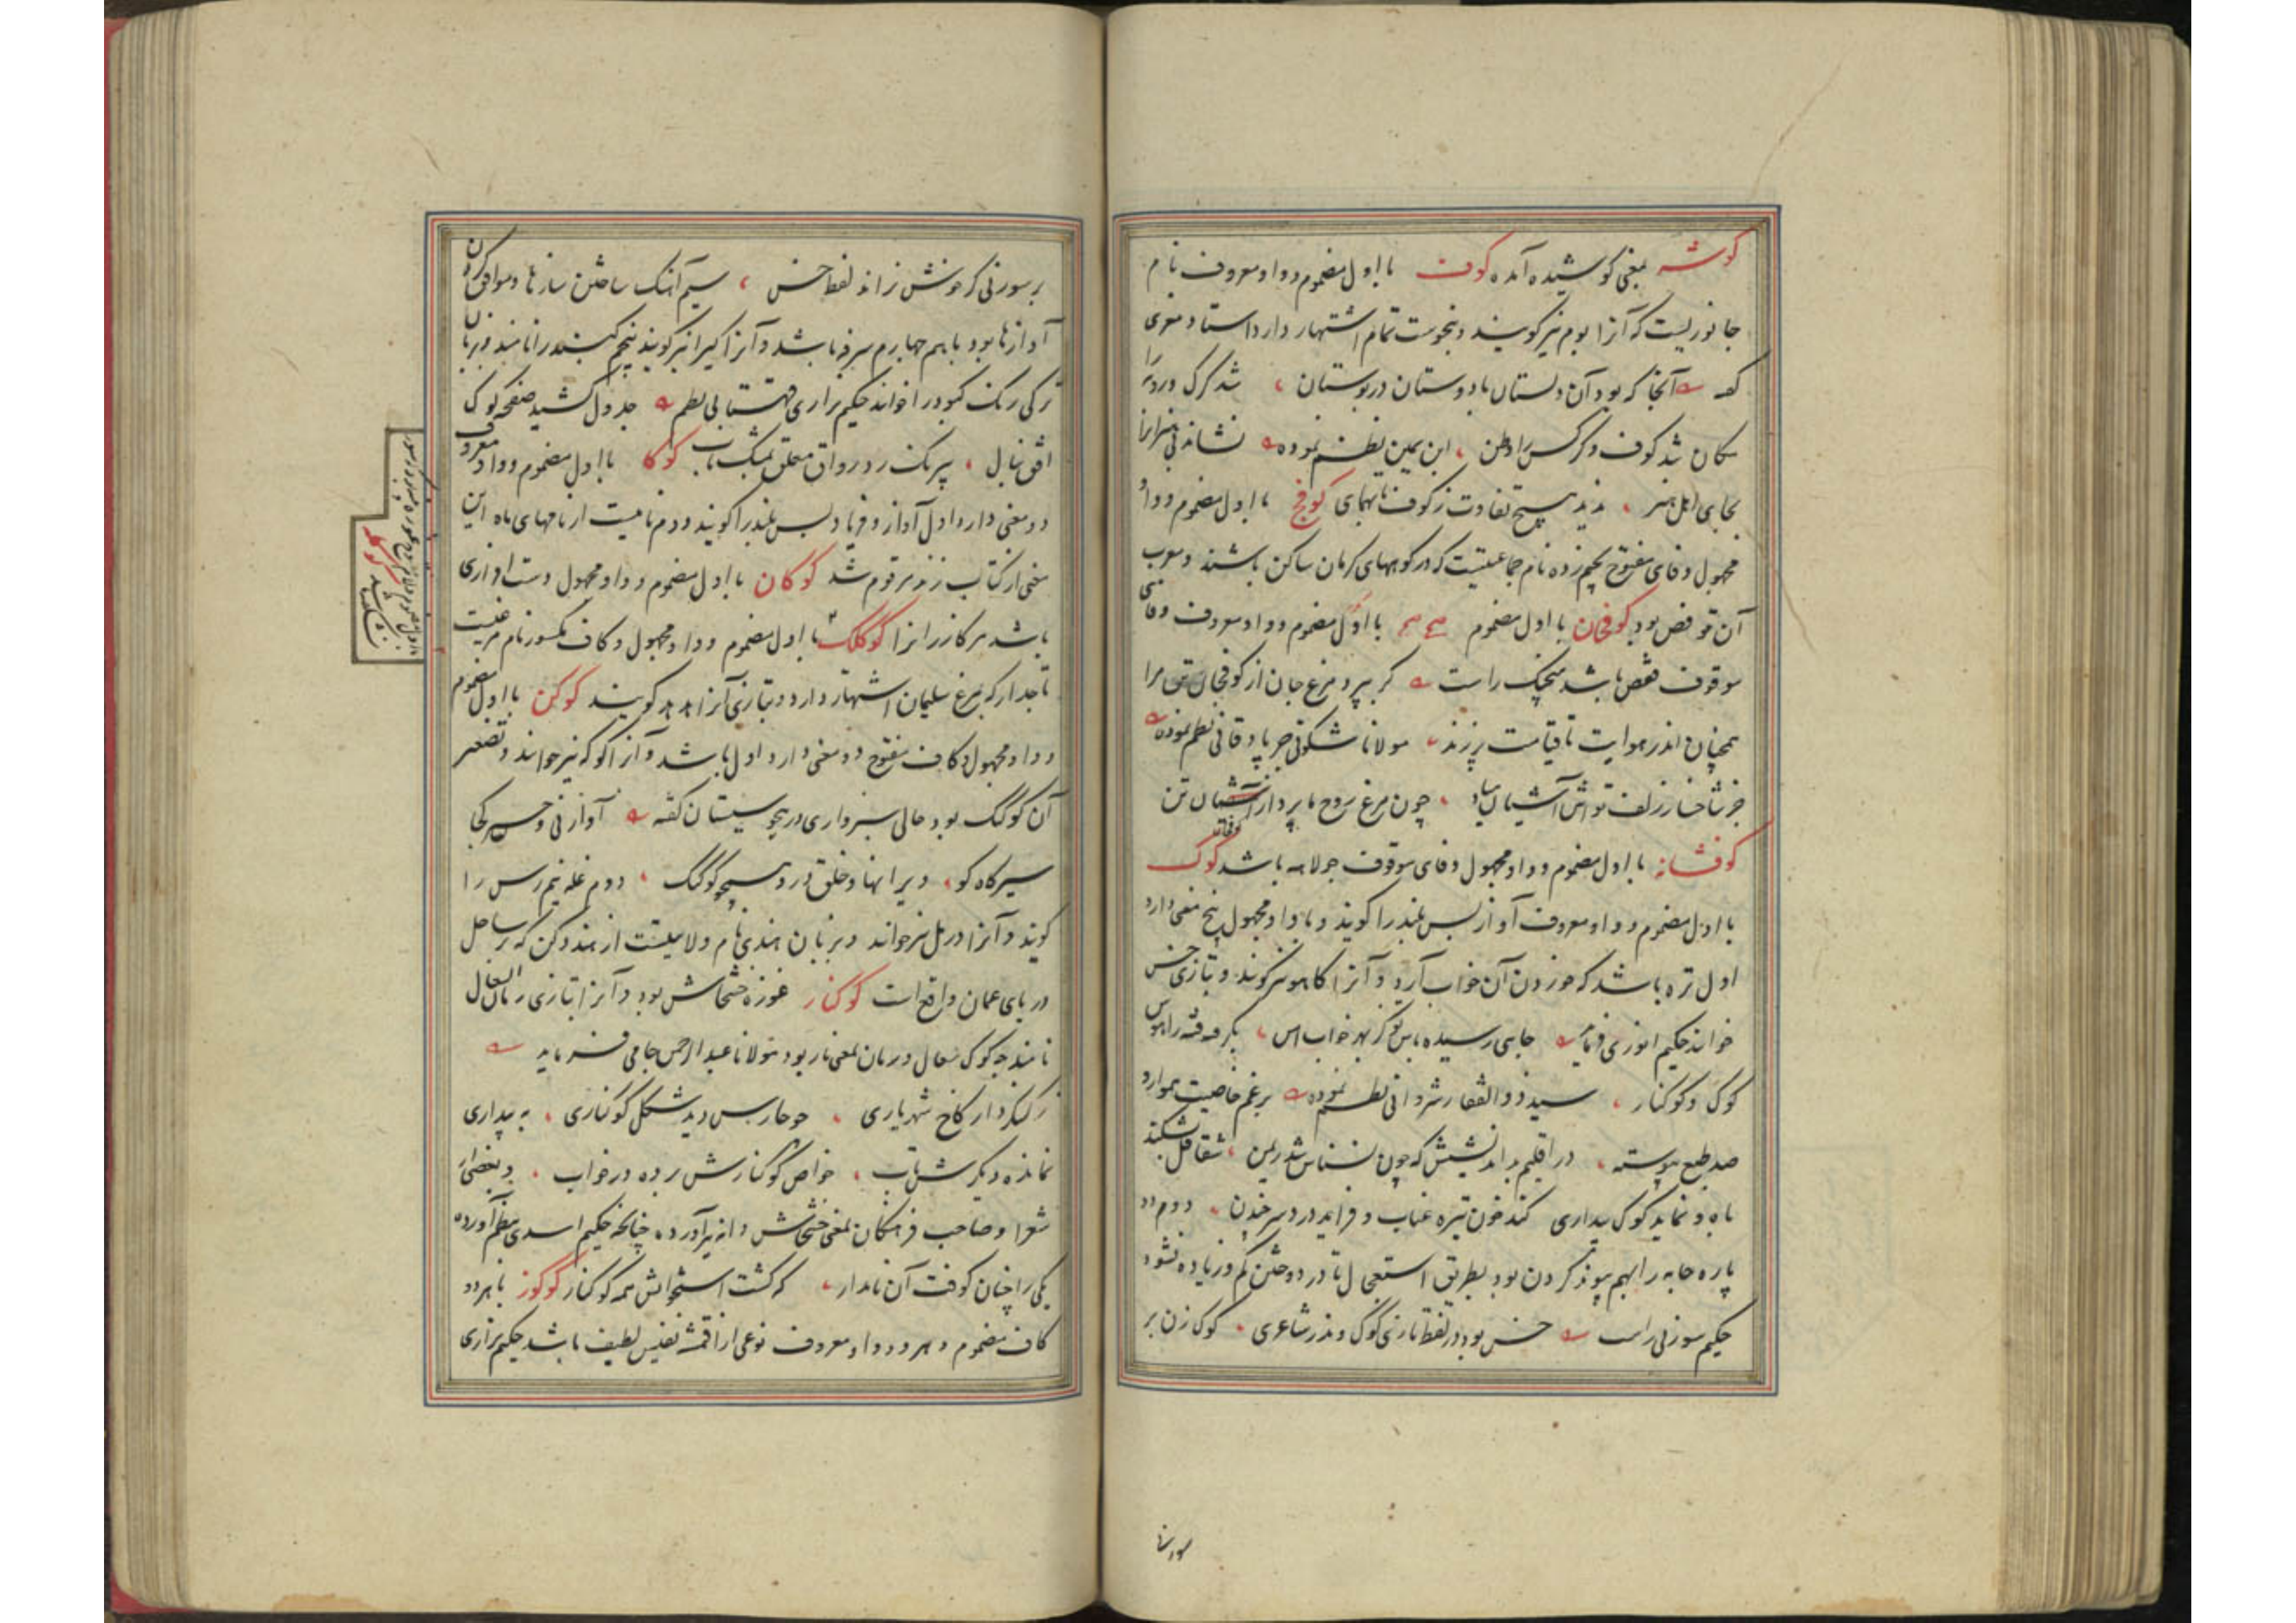 کوشه بمعنی کوشیده آمده کوف با اول مضموم و واو معروف نام
جانوریست که آنرا بوم نیز گویند و بنحوست تمام اشتهار دارد استاد معزی
گفته آنجا که بود آن دلستان با دوستان در بوستان شد گرگ و روبه را
مکان شد کوف و کرکس را وطن ابن یمین نظم نموده نشاند بی هنرانرا
بجای اهل هنر ندید هیچ تفاوت ز کوف تا بهمای کوفج با اول مضموم و واو
مجهول و فای مفتوح بجیم زده نام جماعتیست که در کوههای کرمان ساکن باشند و معرب
آن قوفص بود کوفجان با اول مضموم با اول مضموم و واو معروف و فای
موقوف قفص باشد منجیک راست گر بپرد مرغ جان از کوفجان تن مرا
همچنان اندر هوایت تا قیامت پرزند مولانا نظم نموده
جز شاخسار زلف تواش آشیان مباد چون مرغ روح ما پرد از آشیان تن
کوفشانه با اول مضموم و واو مجهول و فای موقوف جولاهه باشد کوک
با اول مضموم و واو معروف آواز بس بلند را گویند و با واو مجهول پنج معنی دارد
اول تره باشد که خوردن آن خواب آرد و آنرا کاهو نیز گویند و بتازی خس
خوانند حکیم انوری فرماید جایی رسیده باس تو کز بهر خواب امن
کوک و کوکنار سید ذوالفقار شروانی نظم نموده برغم خاصیت هموارد
صد طبع پیوسته در اقلیم بداندیشش که چون نسناس شد ریمن شقاقل بشکند
باه و نماید کوک بیداری کند خون تیره عناب و فزاید درد سر چندن دوم دو
پاره جامه را بهم پیوند کردن بود بطریق استعجال تا در دوختن کم و زیاده نشود
حکیم سوزنی راست خس بود در لفظ تازی کوک و ندر شاعری کوک زن بر
بر سوزنی گر خونش ز اند لفظ خس سیم آهنگ ساختن سازها و موافق کردن
آوازها بود با هم چهارم سرفه باشد و آنرا کیرا نیز گویند پنجم گنبد را نامند و بزبان
ترکی رنگ کبود را خوانند حکیم نزاری قهستانی نظم جدول کشید صفحه کوک
افق بنال با اول مضموم و واو معروف کوکا
دو معنی دارد اول آواز و فریاد بس بلند را گویند دوم نامیست از نامهای ماه این
معنی از کتاب زند مرقوم شد کوکان با اول مضموم و واو مجهول دست افزاری
باشد مر کازرانرا کوکلک با اول مضموم و واو مجهول و کاف مکسور نام مرغیست
تاجدار که بمرغ سلیمان اشتهار دارد و بتازی آنرا هدهد گویند کوکن با اول مضموم
و واو مجهول و کاف مفتوح دو معنی دارد اول باشد و آنرا کوکه نیز خوانند و تصغیر
آن کوکک بود حالی سبزواری در هجو سیستان گفته
سیرگاه کو ویرانها و خلق درو همچو کوکک دوم غله نیم رس را
گویند و آنرا درمل نیز خوانند و بزبان هندی نام ولایتیست از هند دکن که بر ساحل
دریای عمان واقع است کوکنار غوزه خشخاش بود و آنرا بتازی رمان السعال
نامند چه کوک سعال و رمان بمعنی نار بود مولانا عبدالرحمن جامی فرماید
ز کنگردار کاخ شهریاری چو حارس دید شکل کوکناری به بیداری
نمانده دیگرش تاب خواص کوکنارش برده در خواب و بعضی از
شعرا و صاحب فرهنگان بمعنی خشخاش دانه نیز آورده چنانچه حکیم اسدی بنظم آورده
یکی را چنان کوفت آن نامدار که گشت استخوانش همه کوکنار کوکوز با هر دو
کاف مضموم و هر دو واو معروف نوعی از اقمشه نفیس لطیف باشد حکیم نزاری